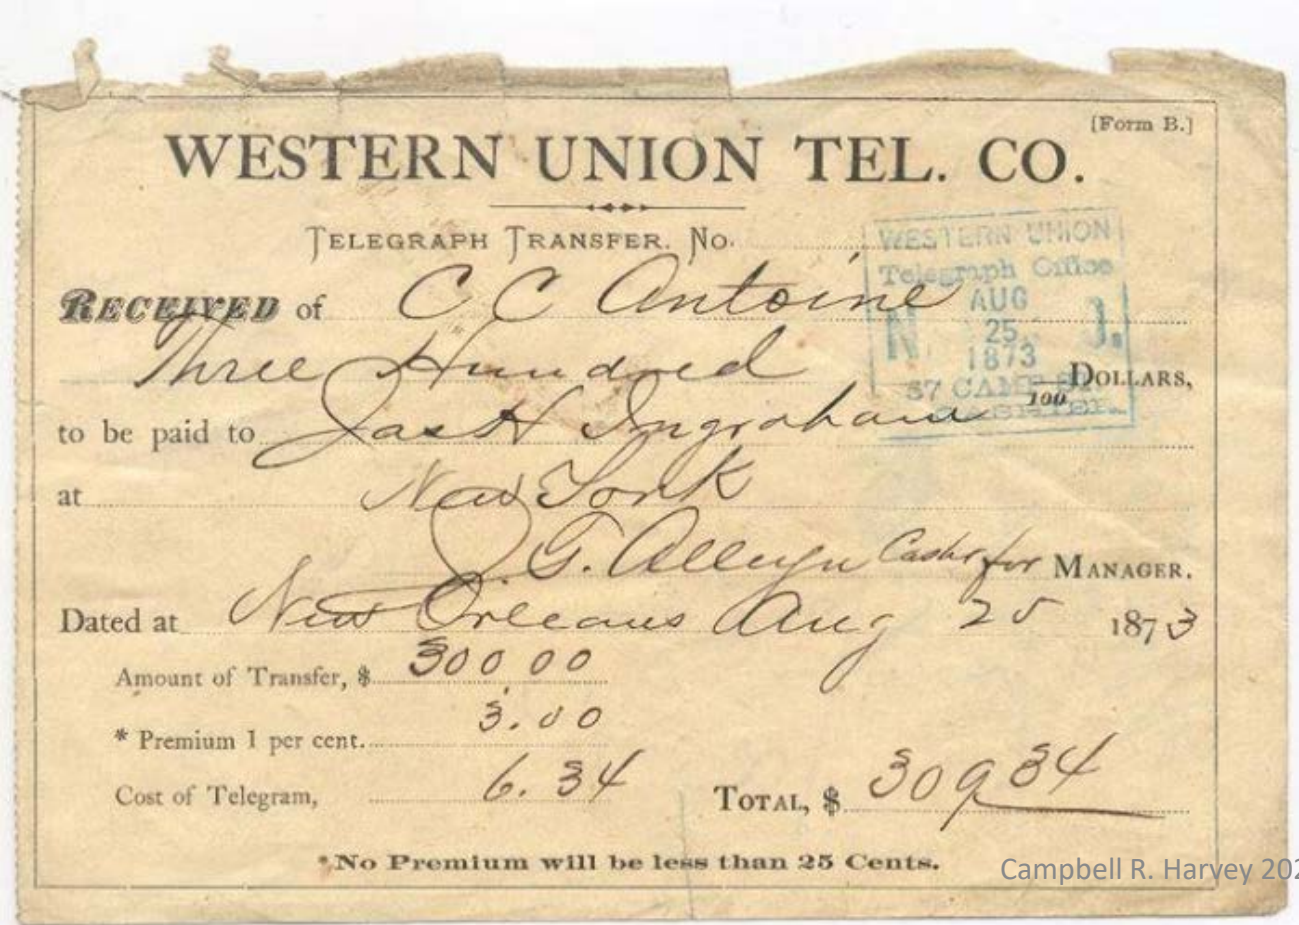 [Form B.]
WESTERN UNION TEL. CO.
TELEGRAPH TRANSFER. No.
WESTERN UNION
Telegraph Office
AUG
25
1873
N. O.
57 CAMP
RECEIVED of C C Antoine
Three Hundred 100 DOLLARS,
to be paid to Jas H Ingraham
at New York
G. Alleyn Cashr for MANAGER.
Dated at New Orleans Aug 25 1873
Amount of Transfer, $ 300.00
* Premium 1 per cent. 3.00
Cost of Telegram, 6.34 TOTAL, $ 309 34
*No Premium will be less than 25 Cents.
Campbell R. Harvey 202